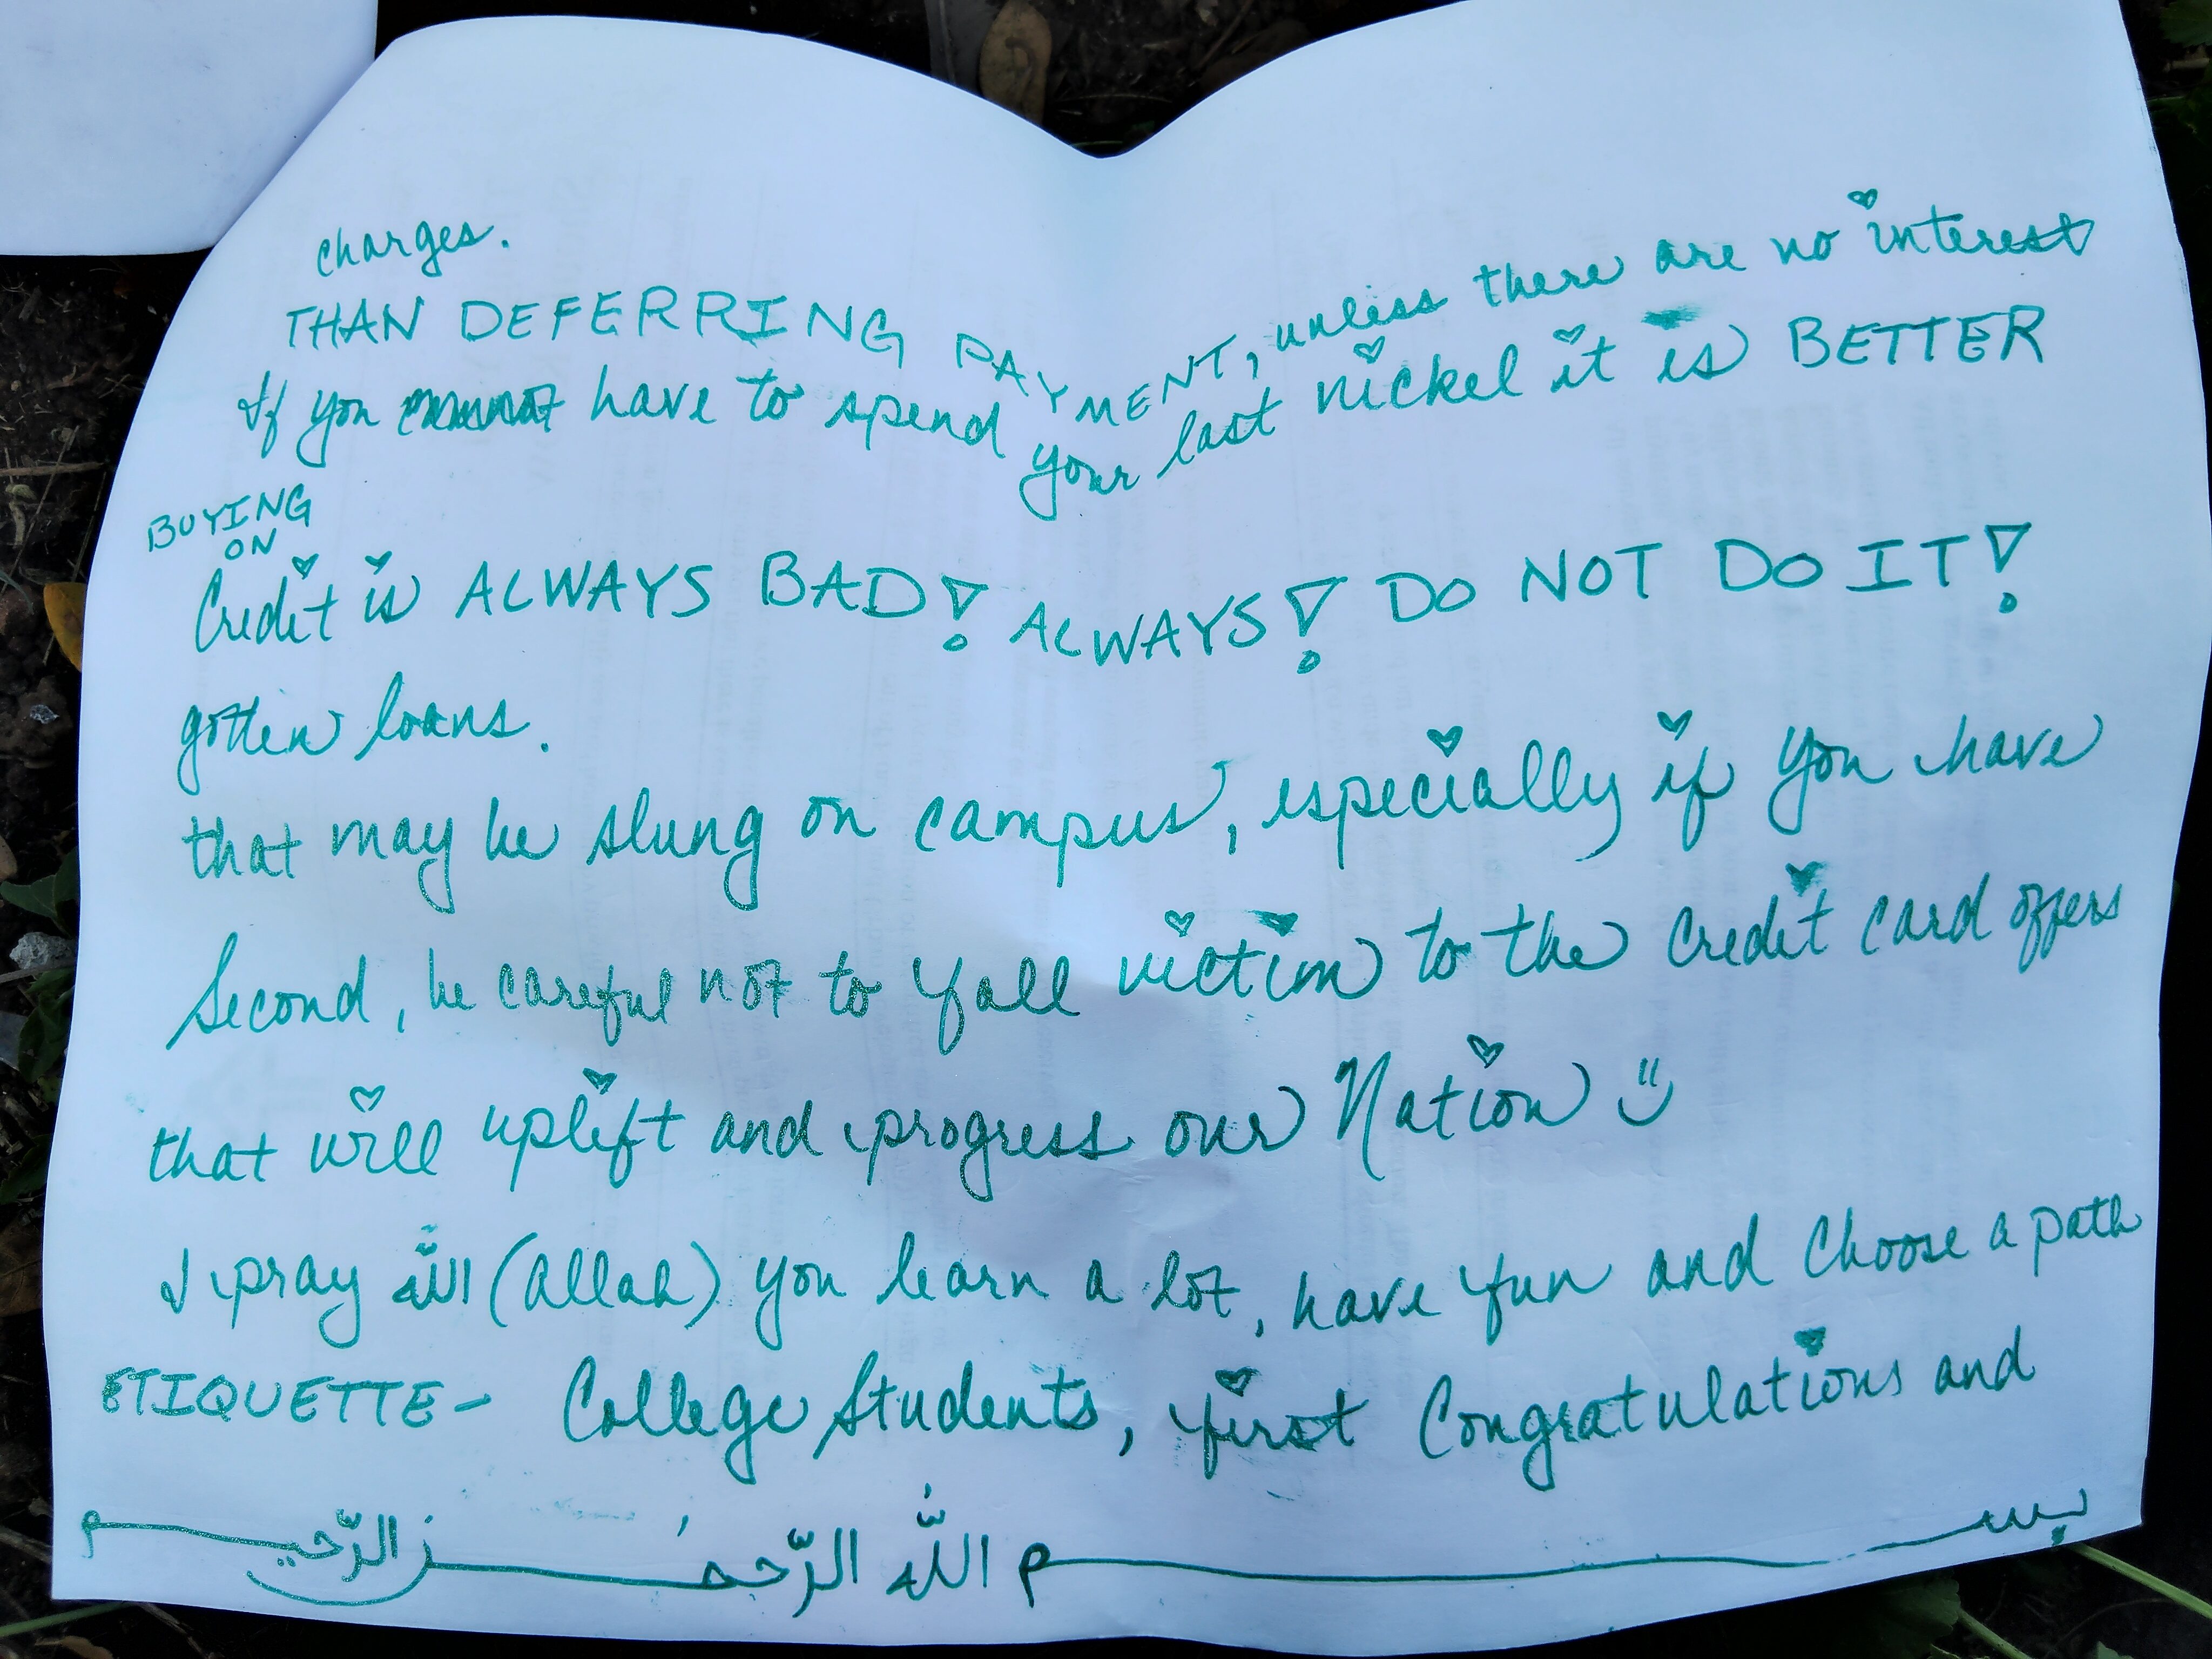 بسم الله الرّحمٰن الرّحيم
ETIQUETTE- College Students, first Congratulations and
I pray اللّٰه (Allah) you learn a lot, have fun and choose a path
that will uplift and progress our Nation
Second, be careful not to fall victim to the credit card offers
that may be slung on campus, especially if you have
gotten loans.
BUYING
ON
Credit is ALWAYS BAD! ALWAYS! DO NOT DO IT!
If you have to spend your last nickel it is BETTER
THAN DEFERRING PAYMENT, unless there are no interest
charges.